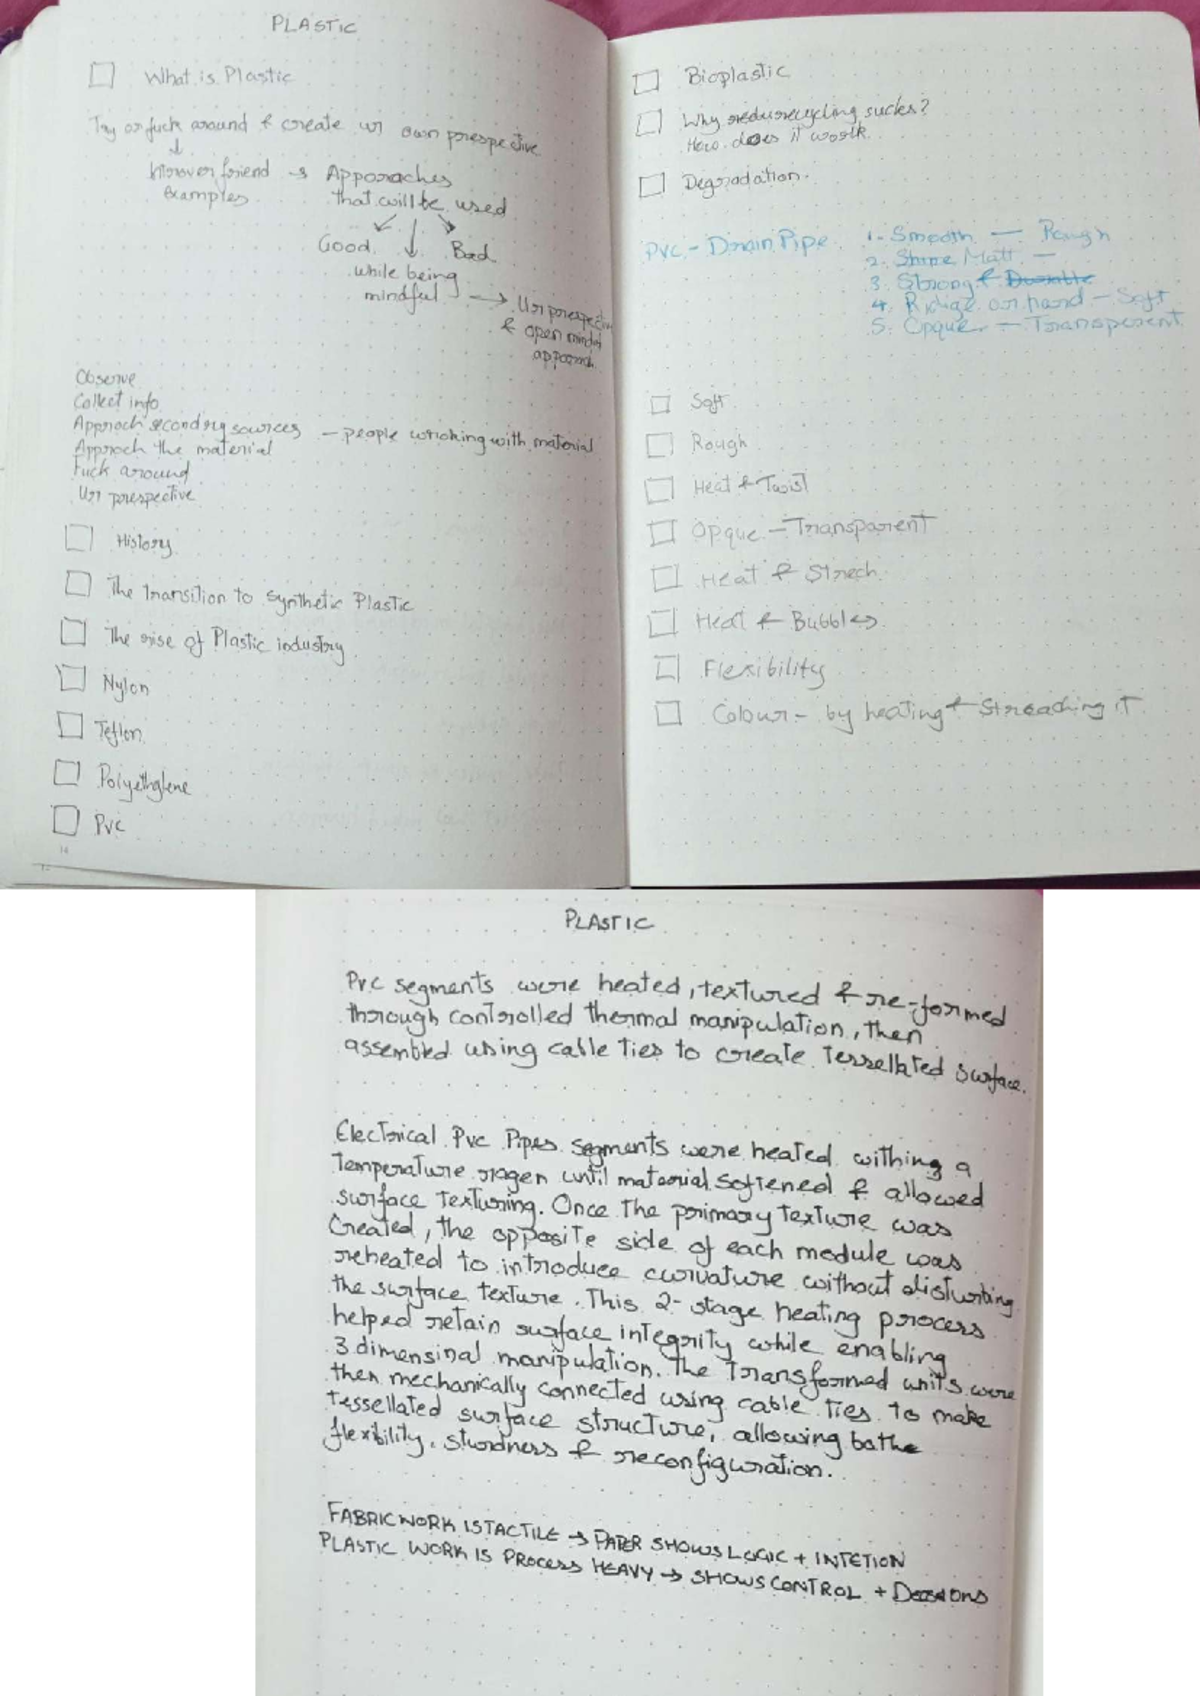 PLASTIC
What is Plastic
Try or fuck around & create ur own prespective
friend → Apporaches
Examples that will be used
Good Bad
while being
mindful → Ur prespective
& open minded
approach
Observe
Collect info
Approch secondry sources — people wroking with material
Approch the material
Fuck around
Ur prespective
History
The transition to synthetic Plastic
The rise of Plastic industry
Nylon
Teflon
Polyethylene
Pvc
Bioplastic
Why recycling sucks?
How does it work
Degradation.
PVC - Drain Pipe
1. Smooth — Rough
2. Shine Matt —
3. Strong & Durable
4. Ridige or hard — Soft
5. Opque — Transperent
Soft
Rough
Heat & Twist
Opque — Transparent
Heat & Strech
Heat & Bubble
Flexibility
Colour - by heating & Streaching it
PLASTIC
Pvc segments were heated, textured & re-formed
through controlled thermal manipulation, then
assembled using cable ties to create Tessellated surface.
Electrical Pvc Pipes segments were heated withing a
Temperature ragen until material softened & allowed
surface texturing. Once the primary texture was
created, the opposite side of each module was
reheated to introduce curvature without disturbing
the surface texture. This 2-stage heating process
helped retain surface integrity while enabling
3 dimensinal manipulation. The transformed units were
then mechanically connected using cable ties to make
tessellated surface structure, allowing bathe
flexibility, sturdness & reconfiguration.
FABRIC WORK IS TACTILE → PAPER SHOWS LOGIC + INTETION
PLASTIC WORK IS PROCESS HEAVY → SHOWS CONTROL + Decisions